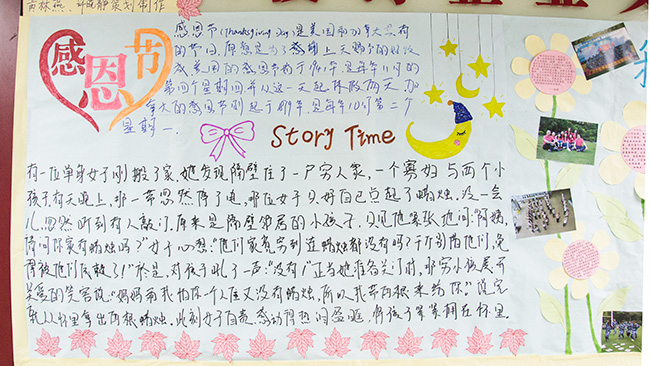 感恩节
感恩节(Thanksgiving Day)是美国和加拿大共有
的节日,原意是为了感谢上天赐予的好收
成。美国的感恩节始于1941年,是每年11月的
第四个星期四,并从这一天起休假两天。加
拿大的感恩节则起于1879年,是每年10月第二个
星期一。
Story Time
有一位单身女子刚搬了家,她发现隔壁住了一户穷人家,一个寡妇与两个小
孩子。有天晚上,那一带忽然停了电,那位女子只好自己点起了蜡烛。没一会
儿,忽然听到有人敲门。原来是隔壁邻居的小孩子,只见他紧张地问:"阿姨,
请问你家有蜡烛吗?"女子心想:"他们家竟穷到连蜡烛都没有吗?千万别借他们,免
得被他们依赖了!"于是,对孩子吼了一声:"没有!"正当她准备关门时,那穷小孩展开
关爱的笑容说:"妈妈和我怕你一个人住又没有蜡烛,所以我带两根来给你。"说完
就从怀里拿出两根蜡烛。此刻女子自责、感动得热泪盈眶,将孩子紧紧拥在怀里。